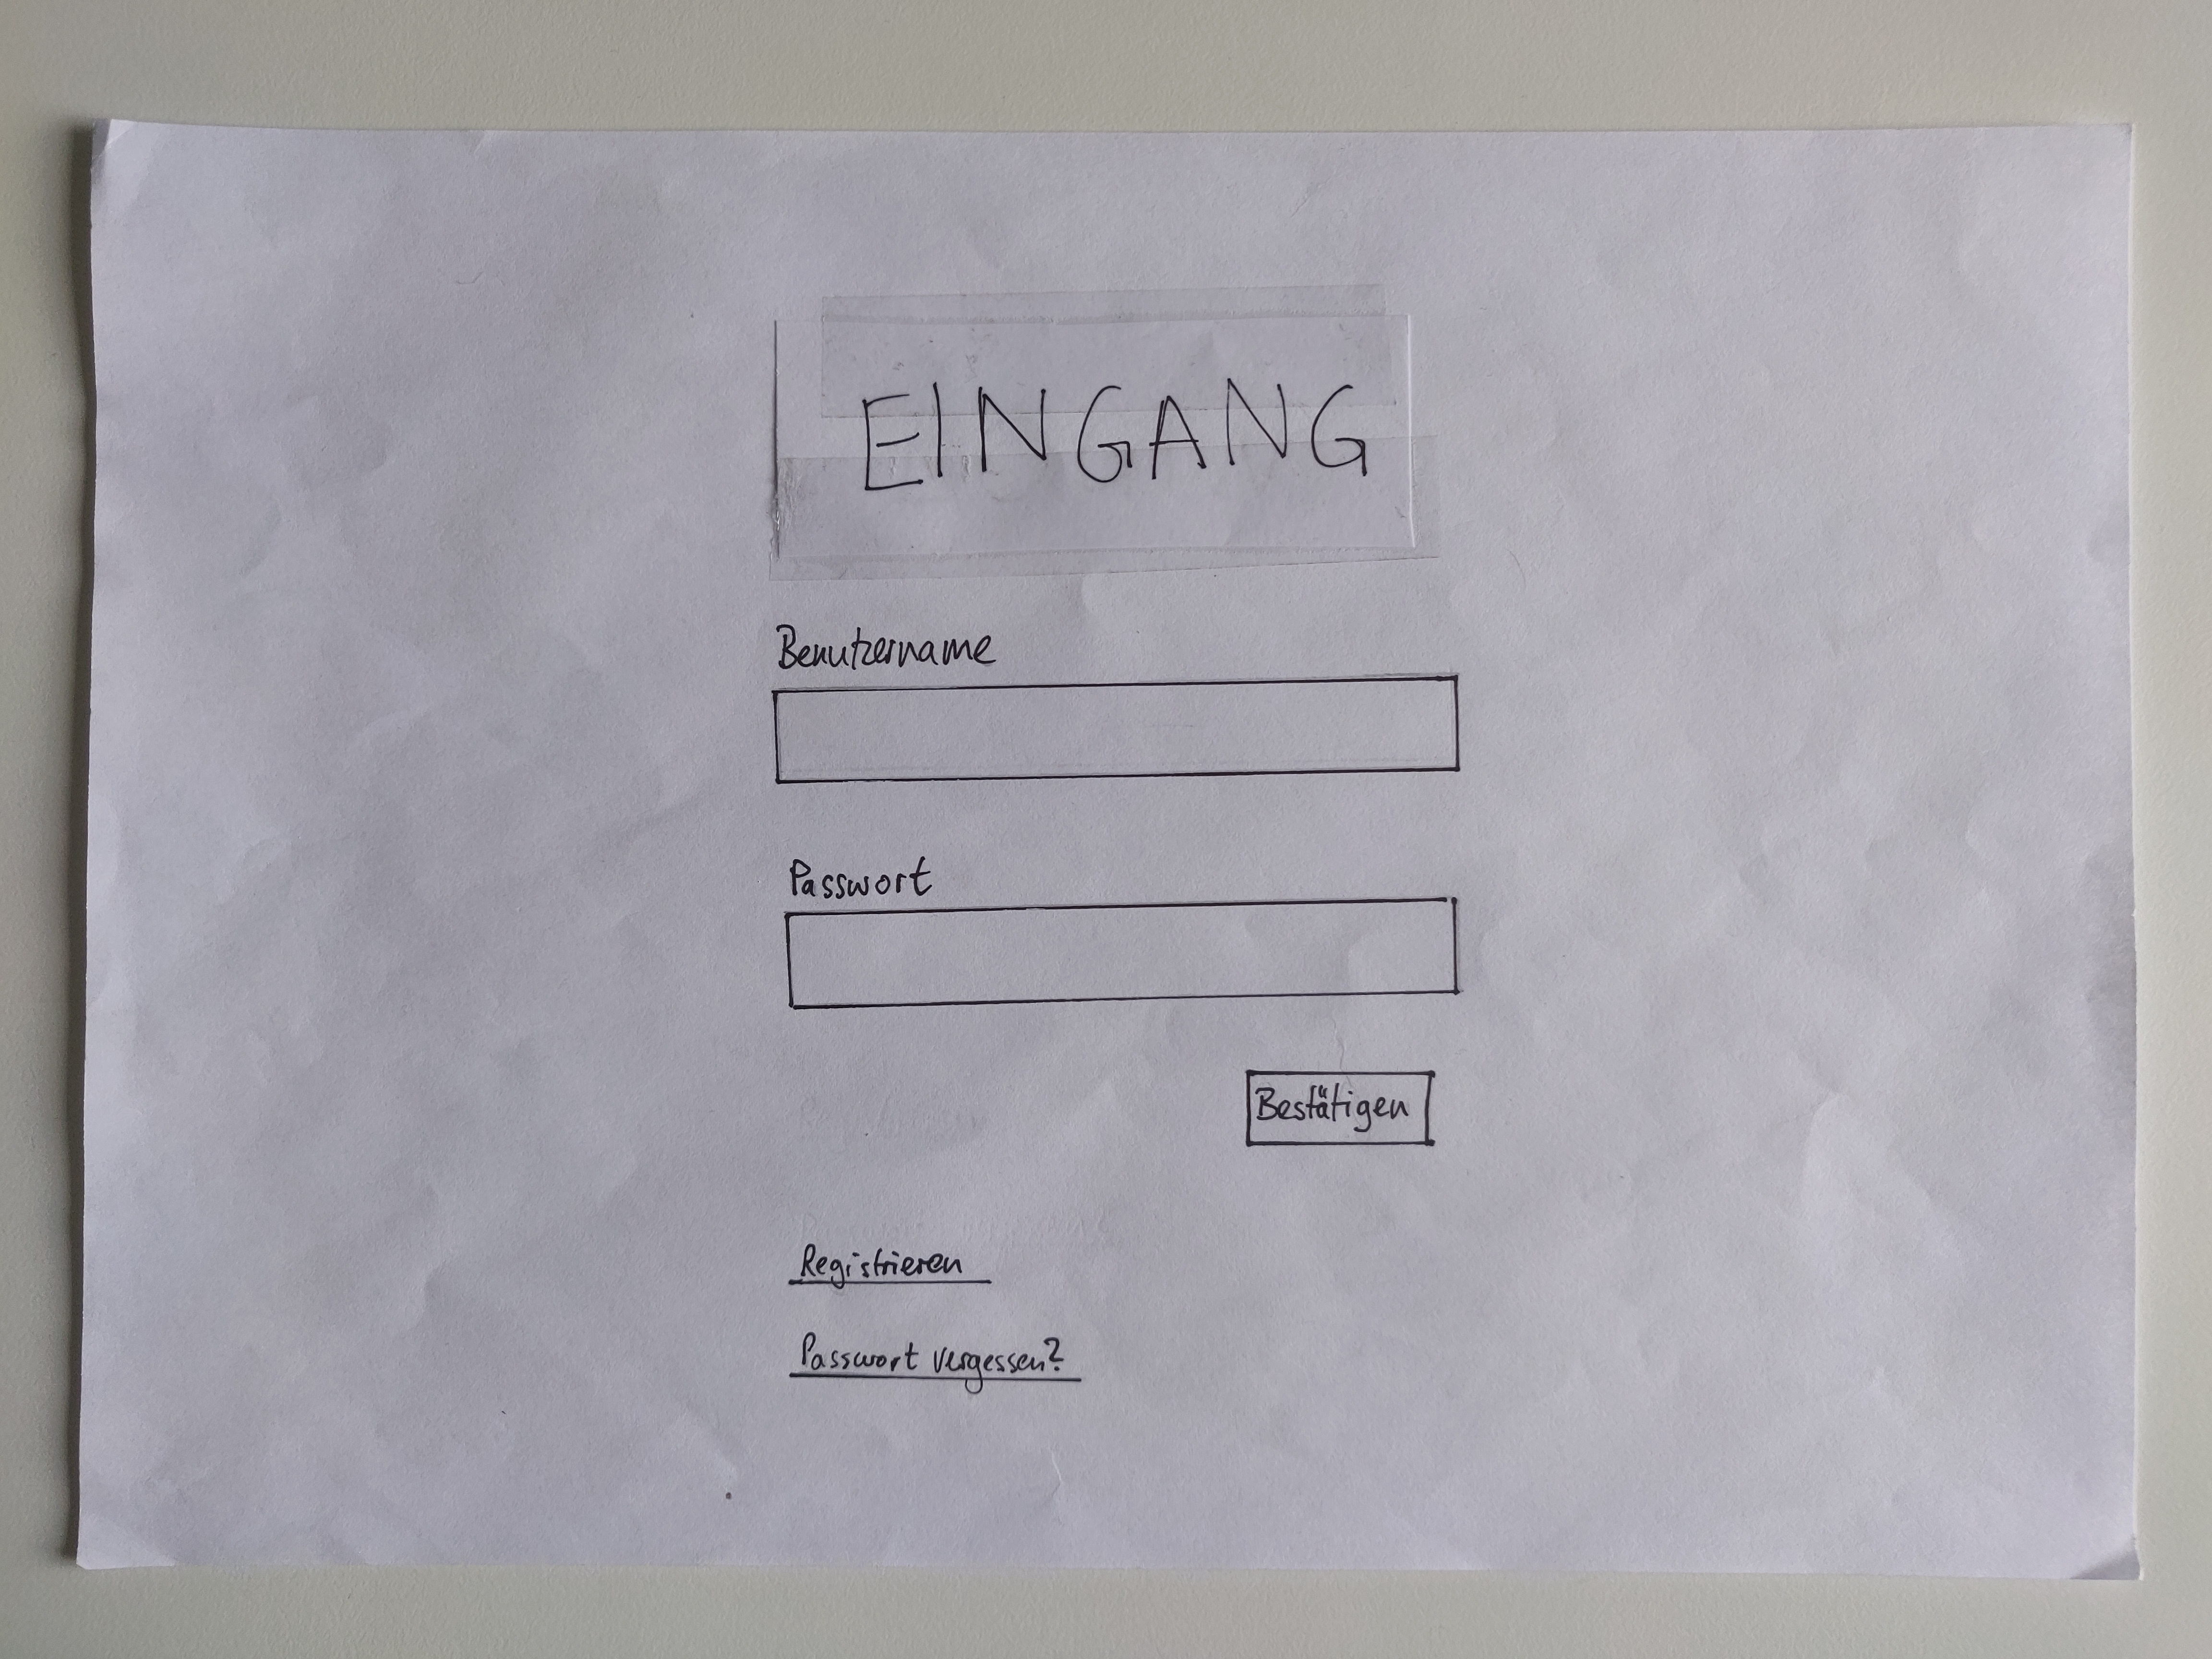 EINGANG
Benutzername
Passwort
Bestätigen
Registrieren
Passwort vergessen?